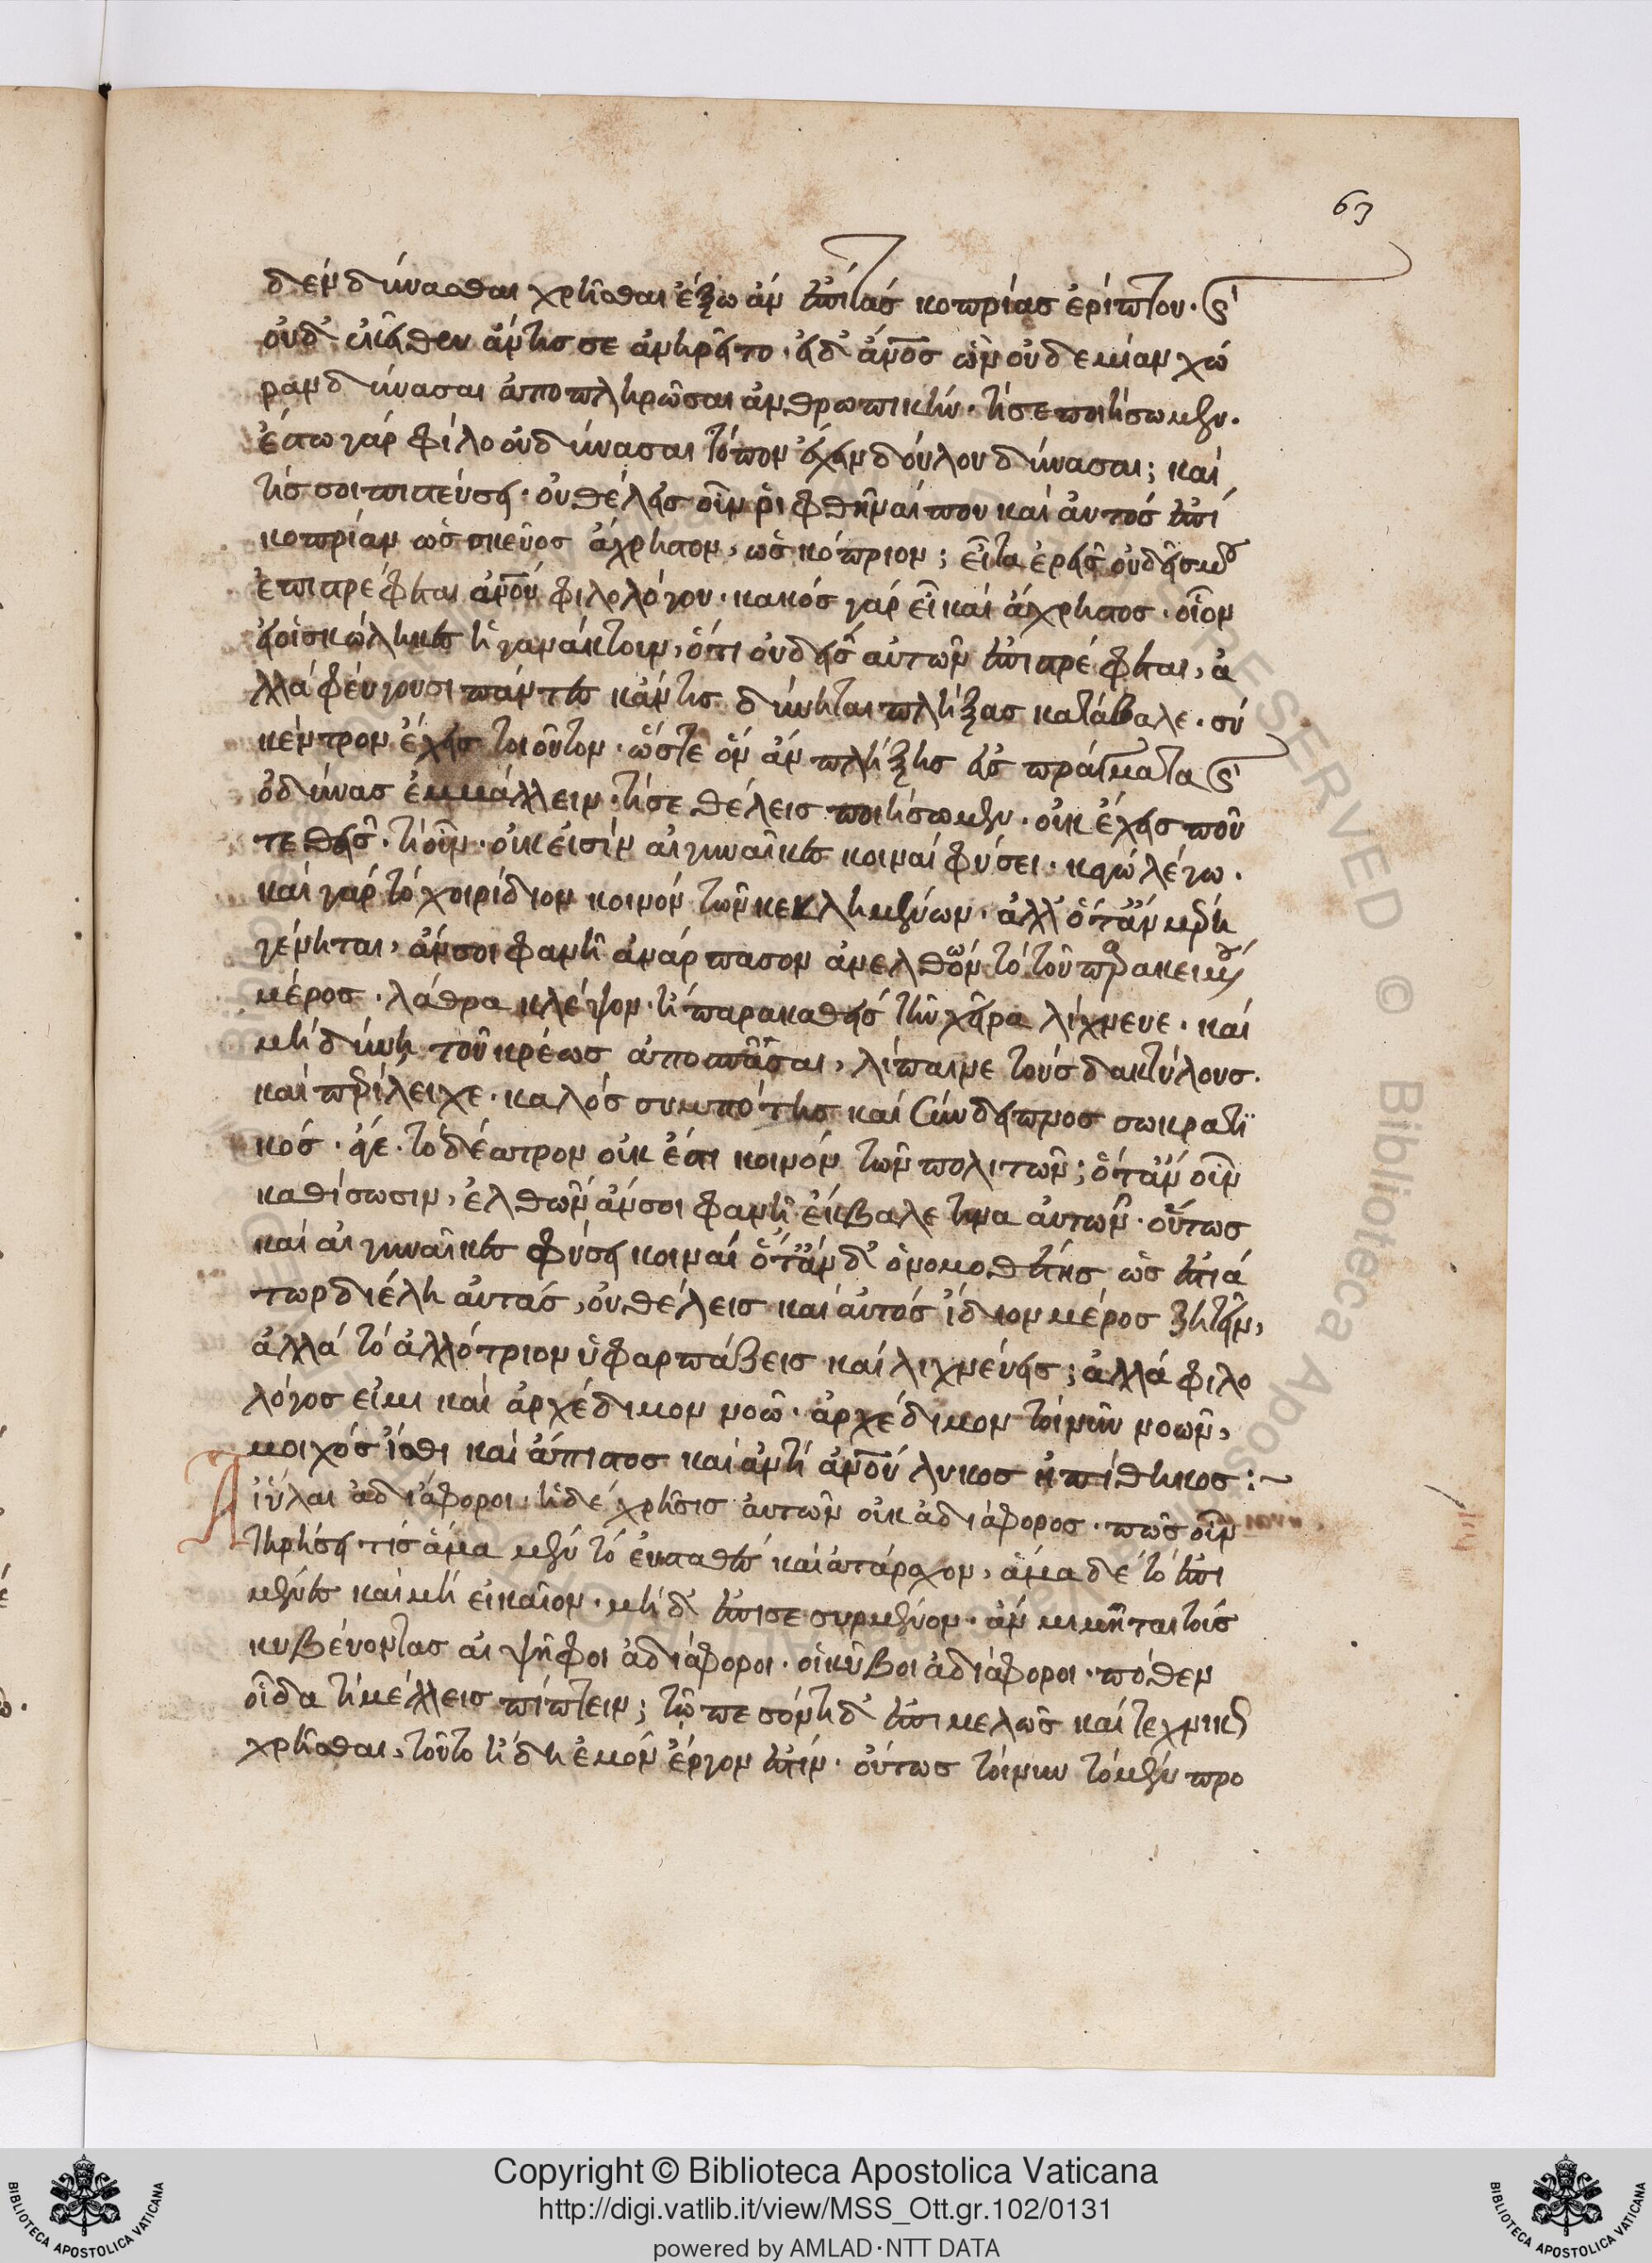 63
δεν δύνασθαι χρῆσθαι ἔξω ἂν ἐπὶ τὰς κοπρίας ἐρίπτου· καὶ
οὐδ' ἐκεῖθεν ἄν τις σε ἀνηρεῖτο· εἰ δ' ἄνος ὢν οὐδεμίαν χώ
ραν δύνασαι ἀποπληρῶσαι ἀνθρωπικήν· τί σε ποιήσωμεν·
ἔστω γὰρ φίλου οὐ δύνασαι τόπον ἔχειν δούλου δύνασαι; καὶ
τίς σοι πιστεύσει· οὐ θέλεις οὖν ῥιφθῆναί που καὶ αὐτὸς ἐπὶ
κοπρίαν ὡς σκεῦος ἄχρηστον, ὡς κόπριον; εἶτα ἐρεῖς οὐδείς μου
ἐπιστρέφεται ἀνου φιλολόγου· κακὸς γὰρ εἶ καὶ ἄχρηστος· οἷον
εἰ οἱ σκώληκες ἠγανάκτουν, ὅτι οὐδεὶς αὐτῶν ἐπιστρέφεται, ἀ
λλὰ φεύγουσι πάντες κἄν τις δύνηται πλήξας κατάβαλε· σὺ
κέντρον ἔχεις τοιοῦτον· ὥστε ὃν ἂν πλήξῃς εἰς πράγματα καὶ
ὀδύνας ἐμβάλλειν· τί σε θέλεις ποιήσωμεν· οὐκ ἔχεις ποῦ
τεθεῖς· τί οὖν· οὐκ εἰσὶν αἱ γυναῖκες κοιναὶ φύσει· κἀγὼ λέγω·
καὶ γὰρ τὸ χοιρίδιον κοινὸν τῶν κεκλημένων· ἀλλ' ὅταν μέρη
γένηται, ἄν σοι φανῇ ἀνάρπασον ἀνελθὼν τὸ τοῦ παρακειμένου
μέρος· λάθρα κλέψον· ἢ παρακαθεὶς τὴν χεῖρα λίχνευε· καὶ
μὴ δύνῃ τοῦ κρέως ἀποσπᾶσαι, λίπαινε τοὺς δακτύλους·
καὶ περίλειχε· καλὸς συμπότης καὶ σύνδειπνος σωκρατι
κός· ἄγε· τὸ θέατρον οὐκ ἔστι κοινὸν τῶν πολιτῶν; ὅταν οὖν
καθίσωσιν, ἐλθὼν ἄν σοι φανῇ ἔκβαλέ τινα αὐτῶν· οὕτως
καὶ αἱ γυναῖκες φύσει κοιναὶ ὅταν δ' ὁ νομοθέτης ὡς ἑστιά
τωρ διέλῃ αὐτάς, οὐ θέλεις καὶ αὐτὸς ἴδιον μέρος ζητεῖν,
ἀλλὰ τὸ ἀλλότριον ὑφαρπάζεις καὶ λιχνεύεις; ἀλλὰ φιλό
λογος εἰμι καὶ ἀρχέδημον νοῶ· ἀρχέδημον τοίνυν νοῶν,
μοιχὸς ἴσθι καὶ ἄπιστος καὶ ἀντὶ ἀνου λύκος ἢ πίθηκος:~
Αἱ ὗλαι ἀδιάφοροι· ἡ δὲ χρῆσις αὐτῶν οὐκ ἀδιάφορος· πῶς οὖν
τηρήσει τις ἅμα μὲν τὸ εὐσταθὲς καὶ ἀτάραχον, ἅμα δὲ τὸ ἐπι
μελὲς καὶ μὴ εἰκαῖον· μὴ δ' ἐπισεσυρμένον· ἂν μιμῆται τοὺς
κυβεύοντας αἱ ψῆφοι ἀδιάφοροι· οἱ κύβοι ἀδιάφοροι· πόθεν
οἶδα τί μέλλεις πίπτειν; τῷ πεσόντι δ' ἐπιμελῶς καὶ τεχνικῶς
χρῆσθαι, τοῦτο ἤδη ἐμὸν ἔργον ἐστίν· οὕτως τοίνυν τὸ μὲν προ
Copyright © Biblioteca Apostolica Vaticana
http://digi.vatlib.it/view/MSS_Ott.gr.102/0131
powered by AMLAD·NTT DATA
BIBLIOTECA APOSTOLICA VATICANA
BIBLIOTECA APOSTOLICA VATICANA